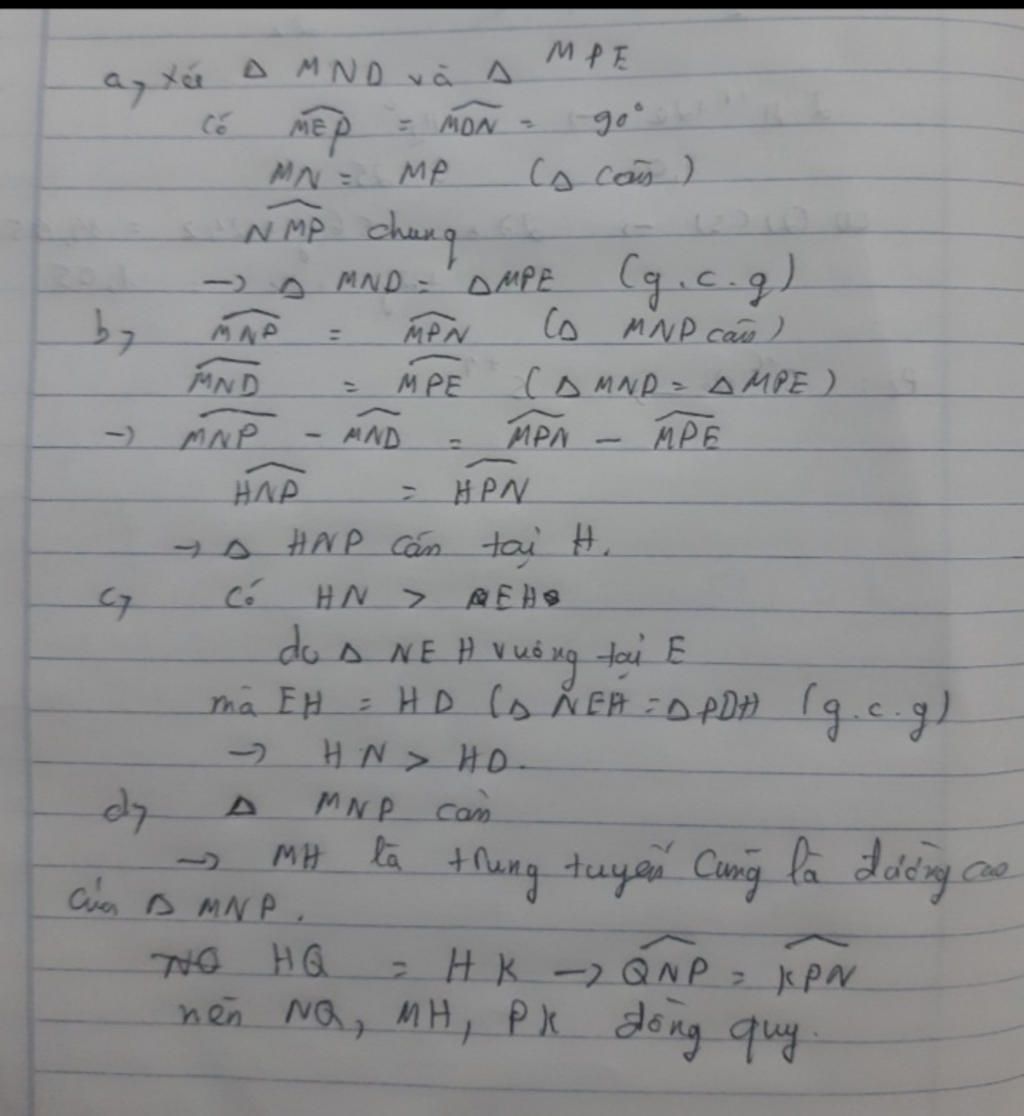 a, xét Δ MND và Δ MPE
Có MEP = MDN = 90°
MN = MP (Δ cân)
NMP chung
→ Δ MND = ΔMPE (g.c.g)
b, MNP = MPN (Δ MNP cân)
MND = MPE (Δ MND = Δ MPE)
→ MNP - MND = MPN - MPE
HNP = HPN
→ Δ HNP cân tại H.
c, Có HN > EH
do Δ NEH vuông tại E
mà EH = HD (Δ NEH = ΔPDH (g.c.g)
→ HN > HD.
d, Δ MNP cân
→ MH là trung tuyến cũng là đường cao
của Δ MNP.
HQ = HK → QNP = KPN
nên NQ, MH, PK đồng quy.